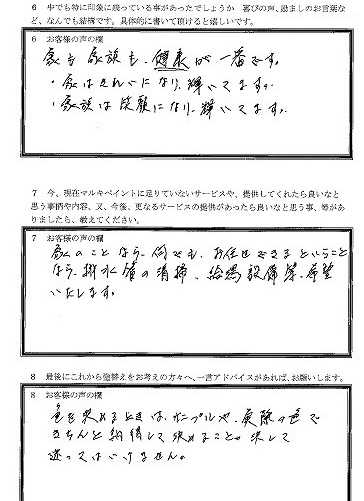 6 中でも特に印象に残っている事があったでしょうか 喜びの声、励ましのお言葉な
ど、なんでも結構です。具体的に書いて頂けると嬉しいです。
6 お客様の声の欄
家も家族も、健康が一番です。
・家はきれいになり、輝いてます。
・家族は笑顔になり、輝いてます。
7 今、現在マルキペイントに足りていないサービスや、提供してくれたら良いなと
思う事柄や内容、又、今後、更なるサービスの提供があったら良いなと思う事、等があ
りましたら、教えてください。
7 お客様の声の欄
家のことなら、何でも、お任せできるということ
なら、排水管の清掃、給湯設備等、希望
いたします。
8 最後にこれから塗替えをお考えの方々へ、一言アドバイスがあれば、お願いします。
8 お客様の声の欄
色を決めるときは、サンプルや、実際の色で
きちんと納得して決めること。決して
迷ってはいけません。